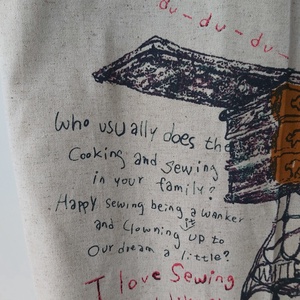 du-du-du-
who usually does the
Cooking and sewing
in your family?
Happy sewing being a wanker
and Clowning it up to
Our dream a little?
I love Sewing